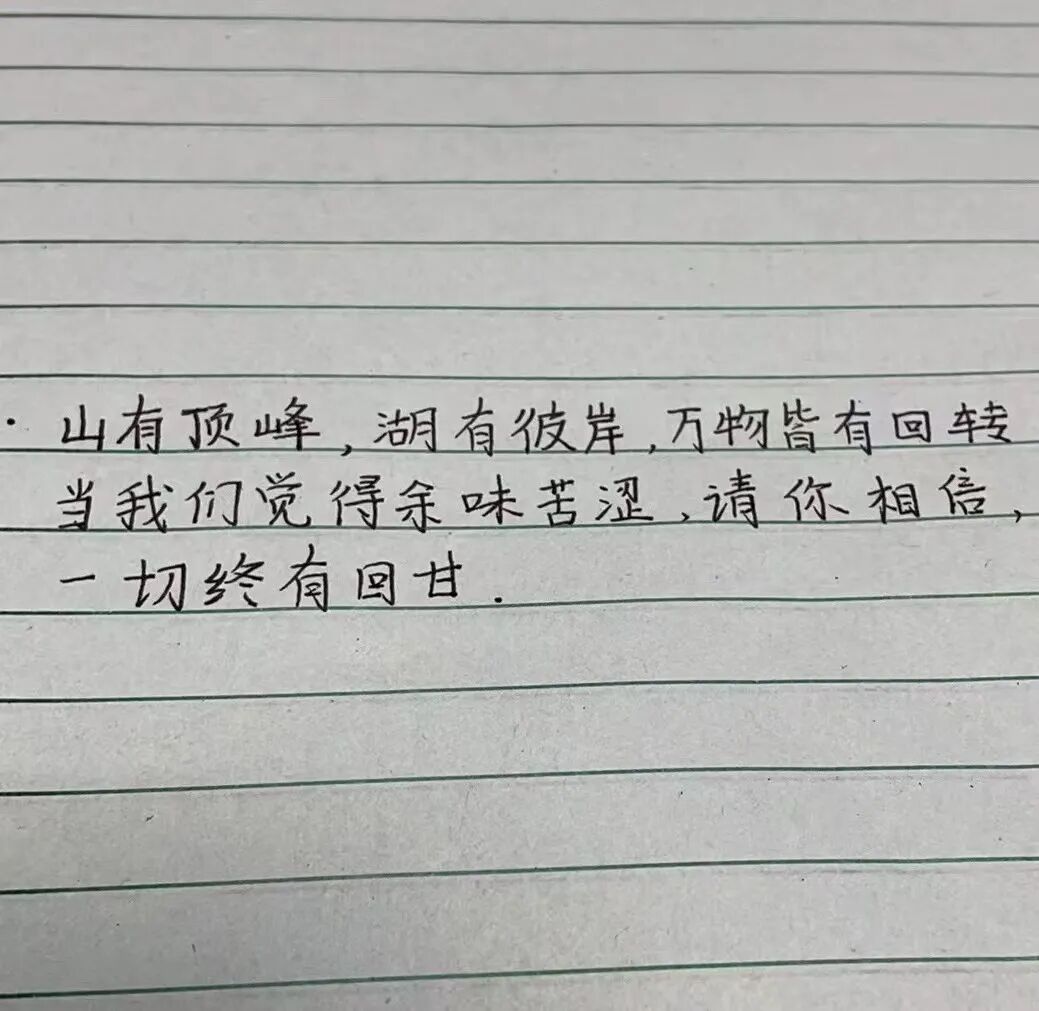 · 山有顶峰,湖有彼岸,万物皆有回转
当我们觉得余味苦涩,请你相信,
一切终有回甘.